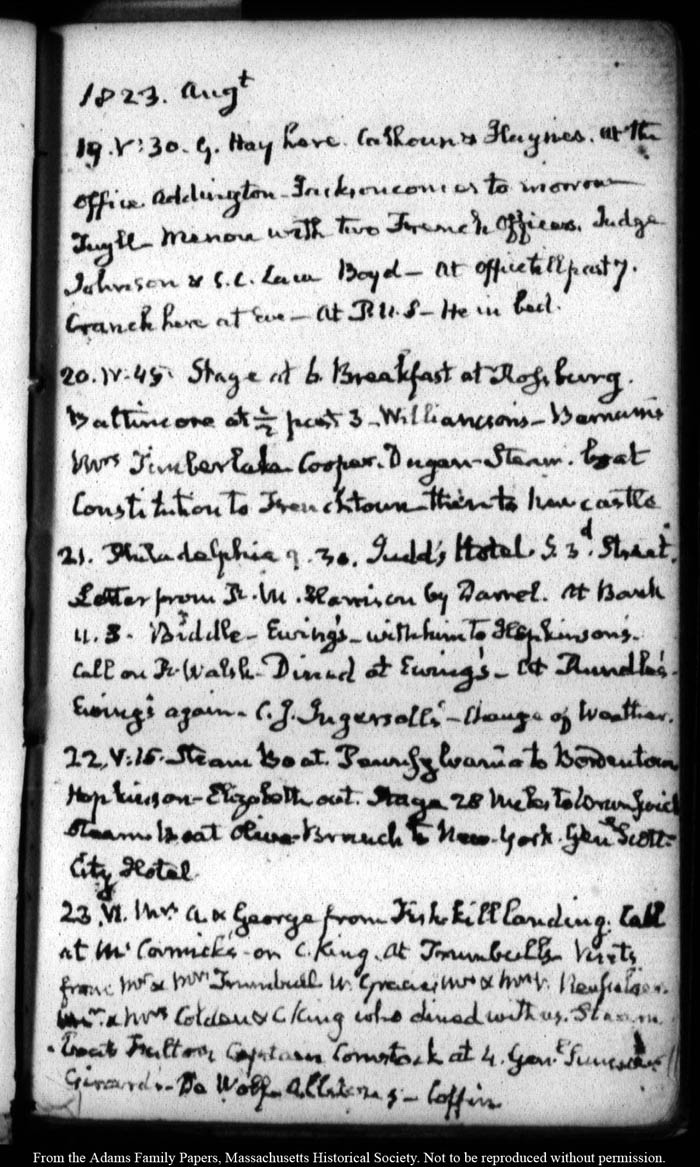 1823. Augt
19. V:30. G. Hay here. Calhoun & Haynes. at the
office. Addington. Jackson comes to morrow
Tuyll. Menou with two French Officers. Judge
Johnson & S.C. Law Boyd — At office till past 7.
Cranch here at Eve — At P.U.S — He in bed.
20. IV:45. Stage at 6. Breakfast at Rossburg.
Baltimore at ½ past 3 — Williamson's — Barnum's
Mrs Timberlake. Cooper. Dugan. Steam. boat
Constitution to Frenchtown thence to Newcastle
21. Philadelphia 9.30. Judd's Hotel. S. 3d. Street.
Letter from R. M. Harrison by Darrel. At Bank
U.S. Biddle — Ewing's — with him to Hopkinson's.
Call on R. Walsh — Dined at Ewing's — At Rundle's.
Ewing's again — C. J. Ingersoll's — Change of Weather.
22. V:15. Steam Boat. Pennsylvania to Bordentown
Hopkinson — Elizabeth out. Stage 28 Miles to Brunswick
Steam Boat Olive-Branch to New-York. Genl Scott
City Hotel.
23. VI. Mrs A. & George from Fishkill landing. Call
at McCormick's — on C. King. At Trumbull's Visits
from Mr & Mrs Trumbull W. Gracie, Mr & Mrs V. Renselaer.
Mr. & Mrs Colden & C King who dined with us. Steam
boat Fulton Captain Comstock at 4. Genl
Girard. De Wolf. — Coffin
From the Adams Family Papers, Massachusetts Historical Society. Not to be reproduced without permission.